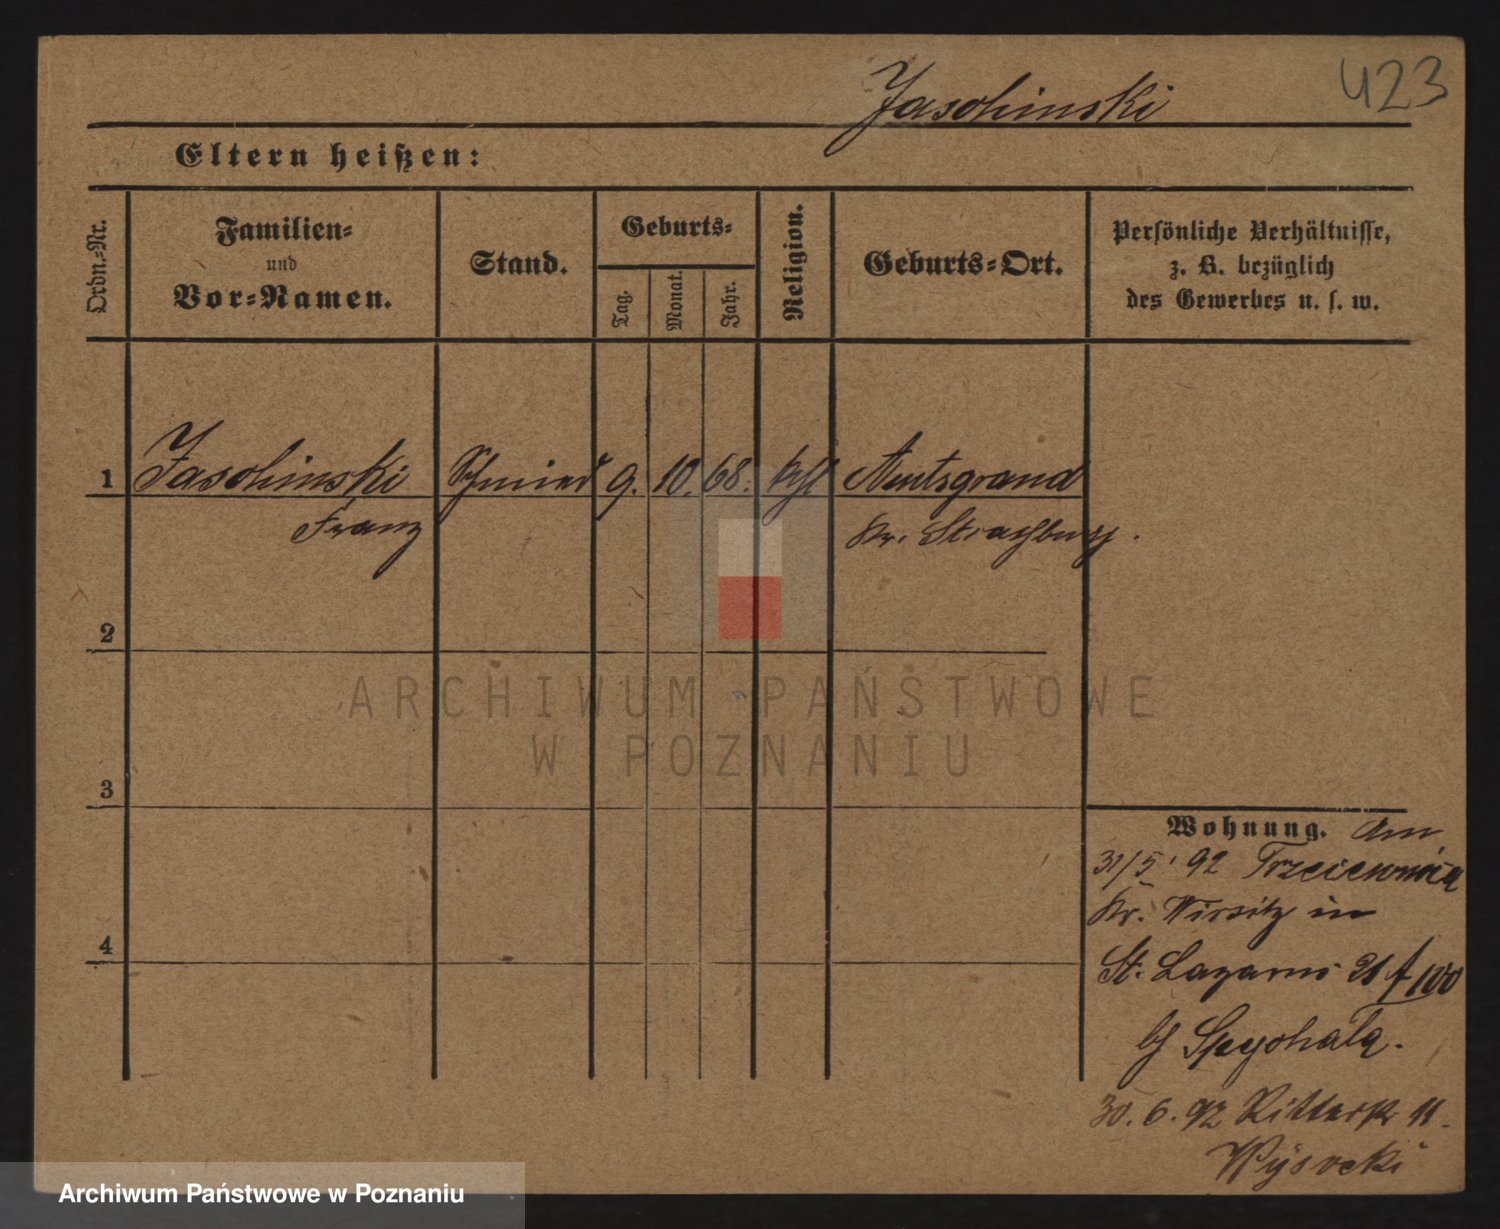 Jasohinski
423
Eltern heißen:
Ordn.-Nr.
Familien-
und
Vor-Namen.
Stand.
Geburts-
Tag.
Monat.
Jahr.
Religion.
Geburts-Ort.
Persönliche Verhältnisse,
z. B. bezüglich
des Gewerbes u. s. w.
1 Jasohinski Schmied 9. 10. 68. kthl
Franz Kr. Straßburg.
2
ARCHIWUM PAŃSTWOWE
W POZNANIU
3
Wohnung. Am
31/5. 92
Kr. Wirsitz in
St. Lazarus 21 f 100
30. 6. 92 Ritterstr 11.
Wysocki
4
Archiwum Państwowe w Poznaniu